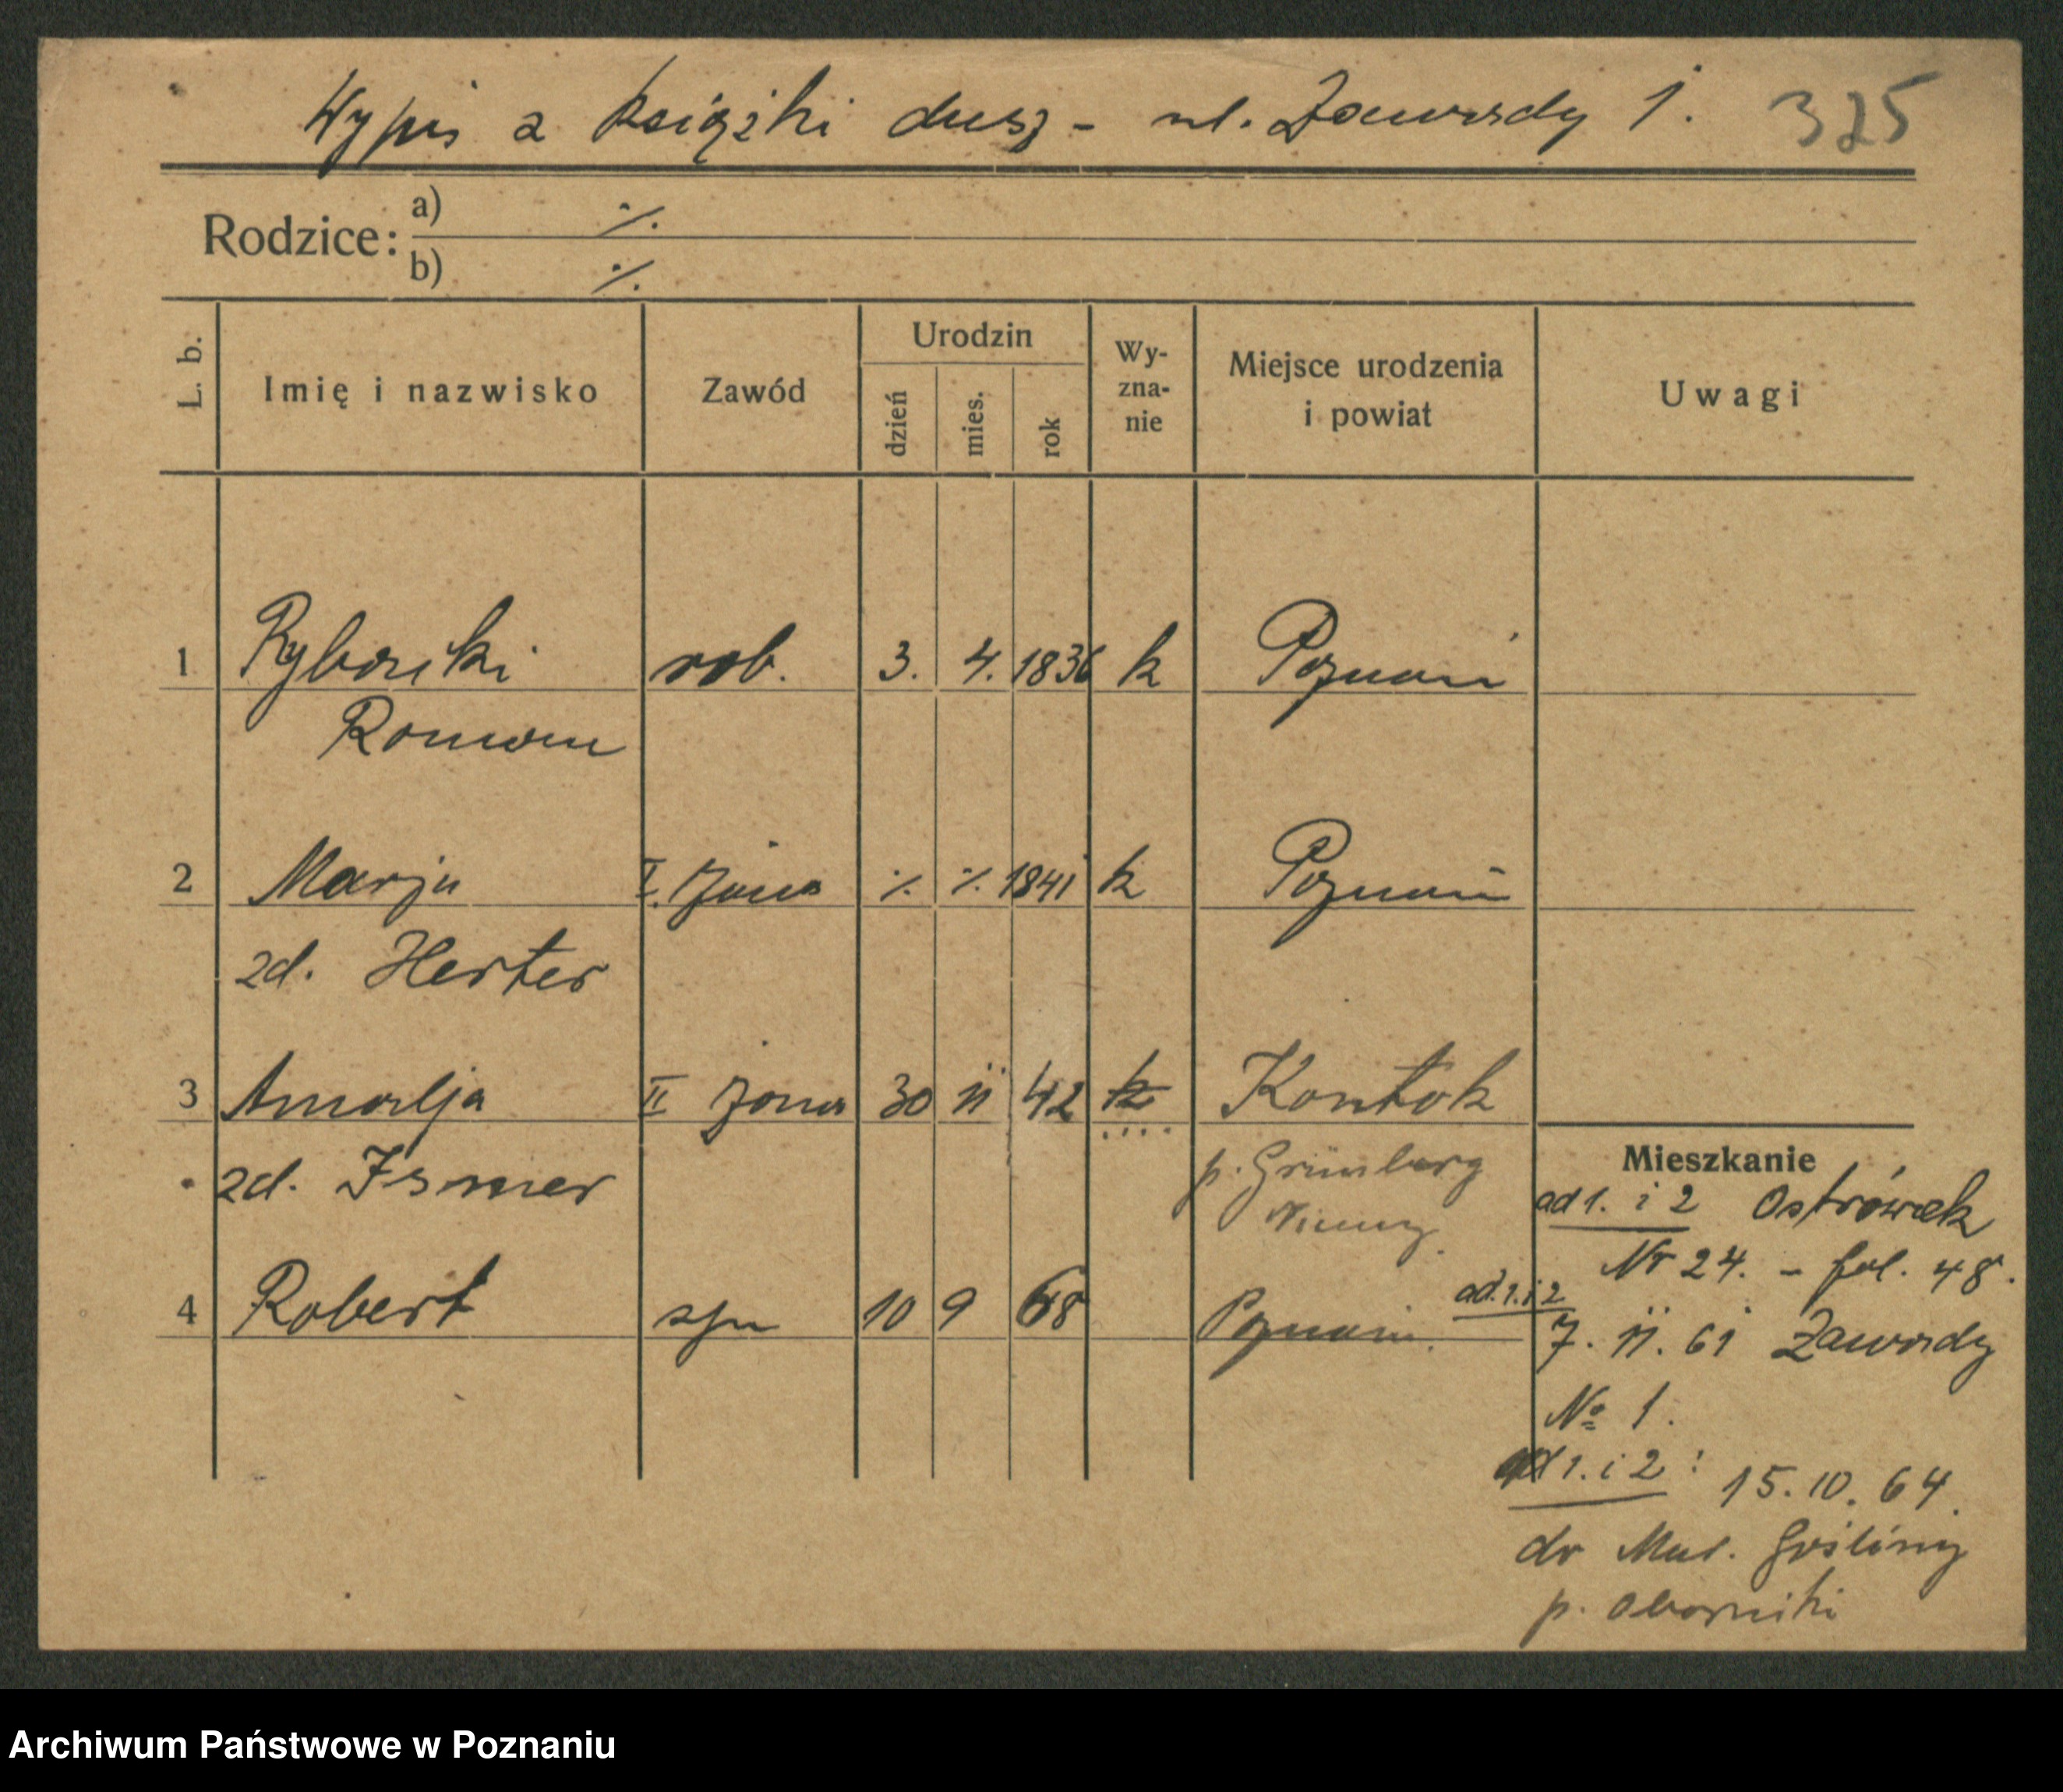 Wypis z książki dusz - ul. Zawady 1. 325
Rodzice: a) ./.
b) ./.
L. b. Imię i nazwisko Zawód Urodzin dzień mies. rok Wy-zna-nie Miejsce urodzenia i powiat Uwagi
1 Ryborski rob. 3. 4. 1836 k Poznań
Roman
2 Marja I. żona ./. ./. 1841 k Poznań
zd. Herter
3 Amalja II żona 30 11 42 k Kontok
Mieszkanie
zd. Ismer p. Grünberg ad 1. i 2 Ostrówek
Niemcy Nr 24. - fol. 48.
4 Robert syn 10 9 68 Poznań. ad. 1. i 2
7. 11. 61 Zawady
No 1.
ad 1. i 2: 15. 10. 64.
do Mur. Gośliny
p. Oborniki
Archiwum Państwowe w Poznaniu